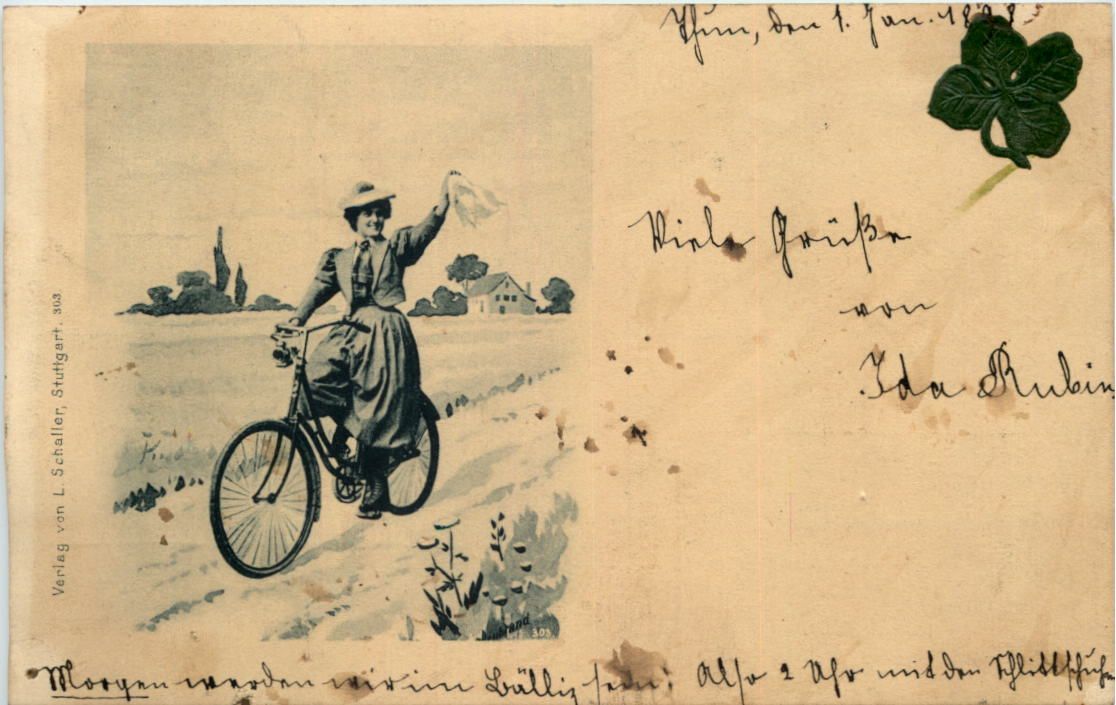 Thun, den 1. Jan. 1898
Viele Grüße
von
Ida Rubin
Verlag von L. Schaller, Stuttgart. 303
303
Morgen werden wir im Bälliz sein; Also 2 Uhr mit den Schlittschuhen